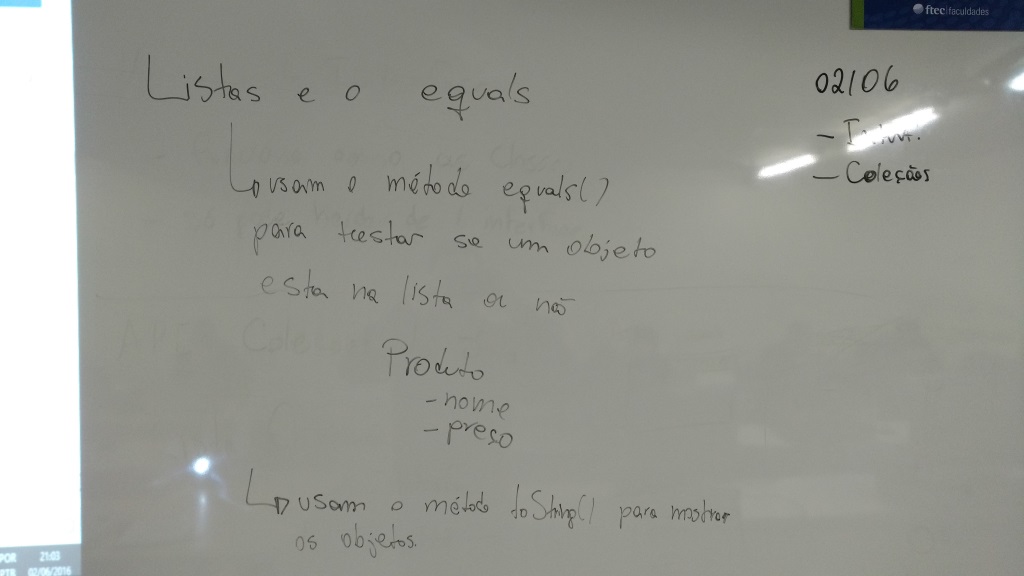 ftec faculdades
Listas e o equals
02/06
- Coleções
usam o método equals()
para teestar se um objeto
esta na lista ou não
Produto
- nome
- preso
usam o método toString() para mostrar
os objetos.
POR 21:03
PTB 02/06/2016